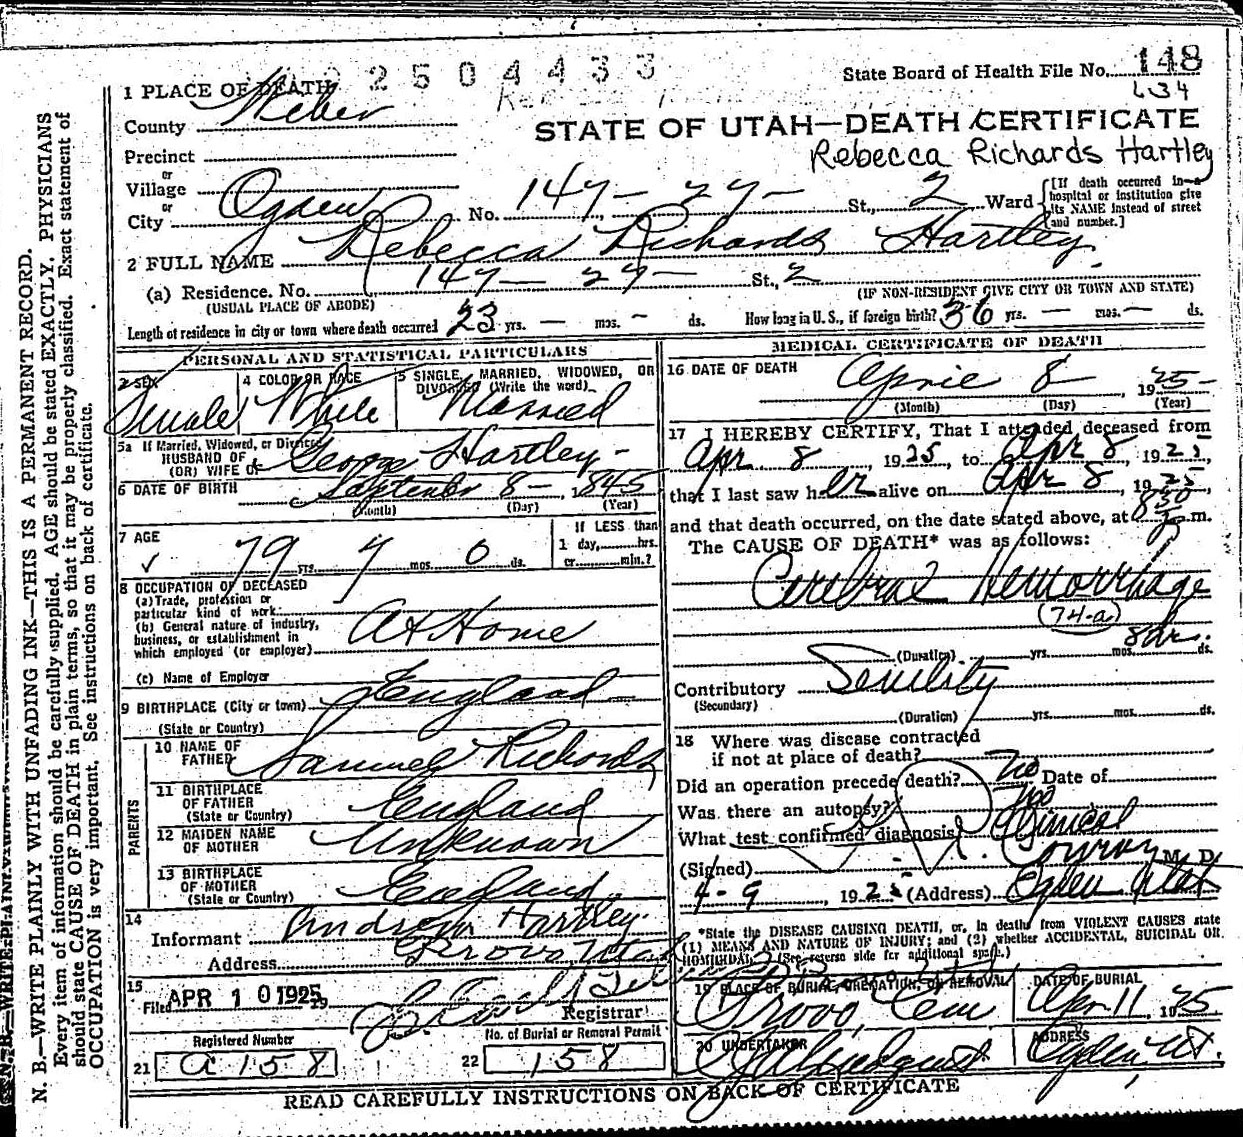 2 5 0 4 4 3 3
State Board of Health File No. 148
634
1 PLACE OF DEATH
County Weber
STATE OF UTAH—DEATH CERTIFICATE
Precinct
Rebecca Richards Hartley
or
Village
or
City Ogden No. 147 — 27 — St., 2 Ward
[If death occurred in a hospital or institution give its NAME instead of street and number.]
2 FULL NAME Rebecca Richards Hartley
(a) Residence. No. 147 — 27 — St., 2
(USUAL PLACE OF ABODE)
(IF NON-RESIDENT GIVE CITY OR TOWN AND STATE)
Length of residence in city or town where death occurred 23 yrs. — mos. - ds. How long in U.S., if foreign birth? 36 yrs. — mos. — ds.
PERSONAL AND STATISTICAL PARTICULARS
3 SEX Female
4 COLOR OR RACE White
5 SINGLE, MARRIED, WIDOWED, OR DIVORCED (Write the word) Married
5a If Married, Widowed, or Divorced
HUSBAND OF
(OR) WIFE OF George Hartley
6 DATE OF BIRTH September 8 — 1845
(Month) (Day) (Year)
7 AGE 79 yrs. 7 mos. 0 ds.
If LESS than
1 day, hrs.
or min.?
8 OCCUPATION OF DECEASED
(a) Trade, profession or
particular kind of work
(b) General nature of industry,
business, or establishment in
which employed (or employer) At Home
(c) Name of Employer
9 BIRTHPLACE (City or town) England
(State or Country)
PARENTS
10 NAME OF
FATHER Samuel Richards
11 BIRTHPLACE
OF FATHER England
(State or Country)
12 MAIDEN NAME
OF MOTHER Unknown
13 BIRTHPLACE
OF MOTHER England
(State or Country)
14
Informant Andrew Hartley
Address Provo, Utah
15
Filed APR 10 1925
Registrar
Registered Number
21 a 158
No. of Burial or Removal Permit
22 158
MEDICAL CERTIFICATE OF DEATH
16 DATE OF DEATH April 8, 1925
(Month) (Day) (Year)
17 I HEREBY CERTIFY, That I attended deceased from
Apr. 8 1925, to Apr 8 1925,
that I last saw her alive on Apr 8 1925,
and that death occurred, on the date stated above, at 8 30 p m.
The CAUSE OF DEATH* was as follows:
Cerebral Hemorrhage
74-a
(Duration) yrs. mos. 8 hrs. ds.
Contributory Senility
(Secondary)
(Duration) yrs. mos. ds.
18 Where was disease contracted
if not at place of death?
Did an operation precede death? No Date of
Was there an autopsy? No
What test confirmed diagnosis? Clinical
(Signed) Conroy M. D.
4 - 9 1925 (Address) Ogden Utah
*State the DISEASE CAUSING DEATH, or, in deaths from VIOLENT CAUSES state
(1) MEANS AND NATURE OF INJURY; and (2) whether ACCIDENTAL, SUICIDAL OR
HOMICIDAL. (See reverse side for additional space.)
19 PLACE OF BURIAL, CREMATION, OR REMOVAL
Provo, Cem
DATE OF BURIAL
Apr 11, 1925
20 UNDERTAKER
ADDRESS
Ogden, Ut.
READ CAREFULLY INSTRUCTIONS ON BACK OF CERTIFICATE
N. B.—WRITE PLAINLY WITH UNFADING INK—THIS IS A PERMANENT RECORD.
Every item of information should be carefully supplied. AGE should be stated EXACTLY. PHYSICIANS
should state CAUSE OF DEATH in plain terms, so that it may be properly classified. Exact statement of
OCCUPATION is very important. See instructions on back of certificate.